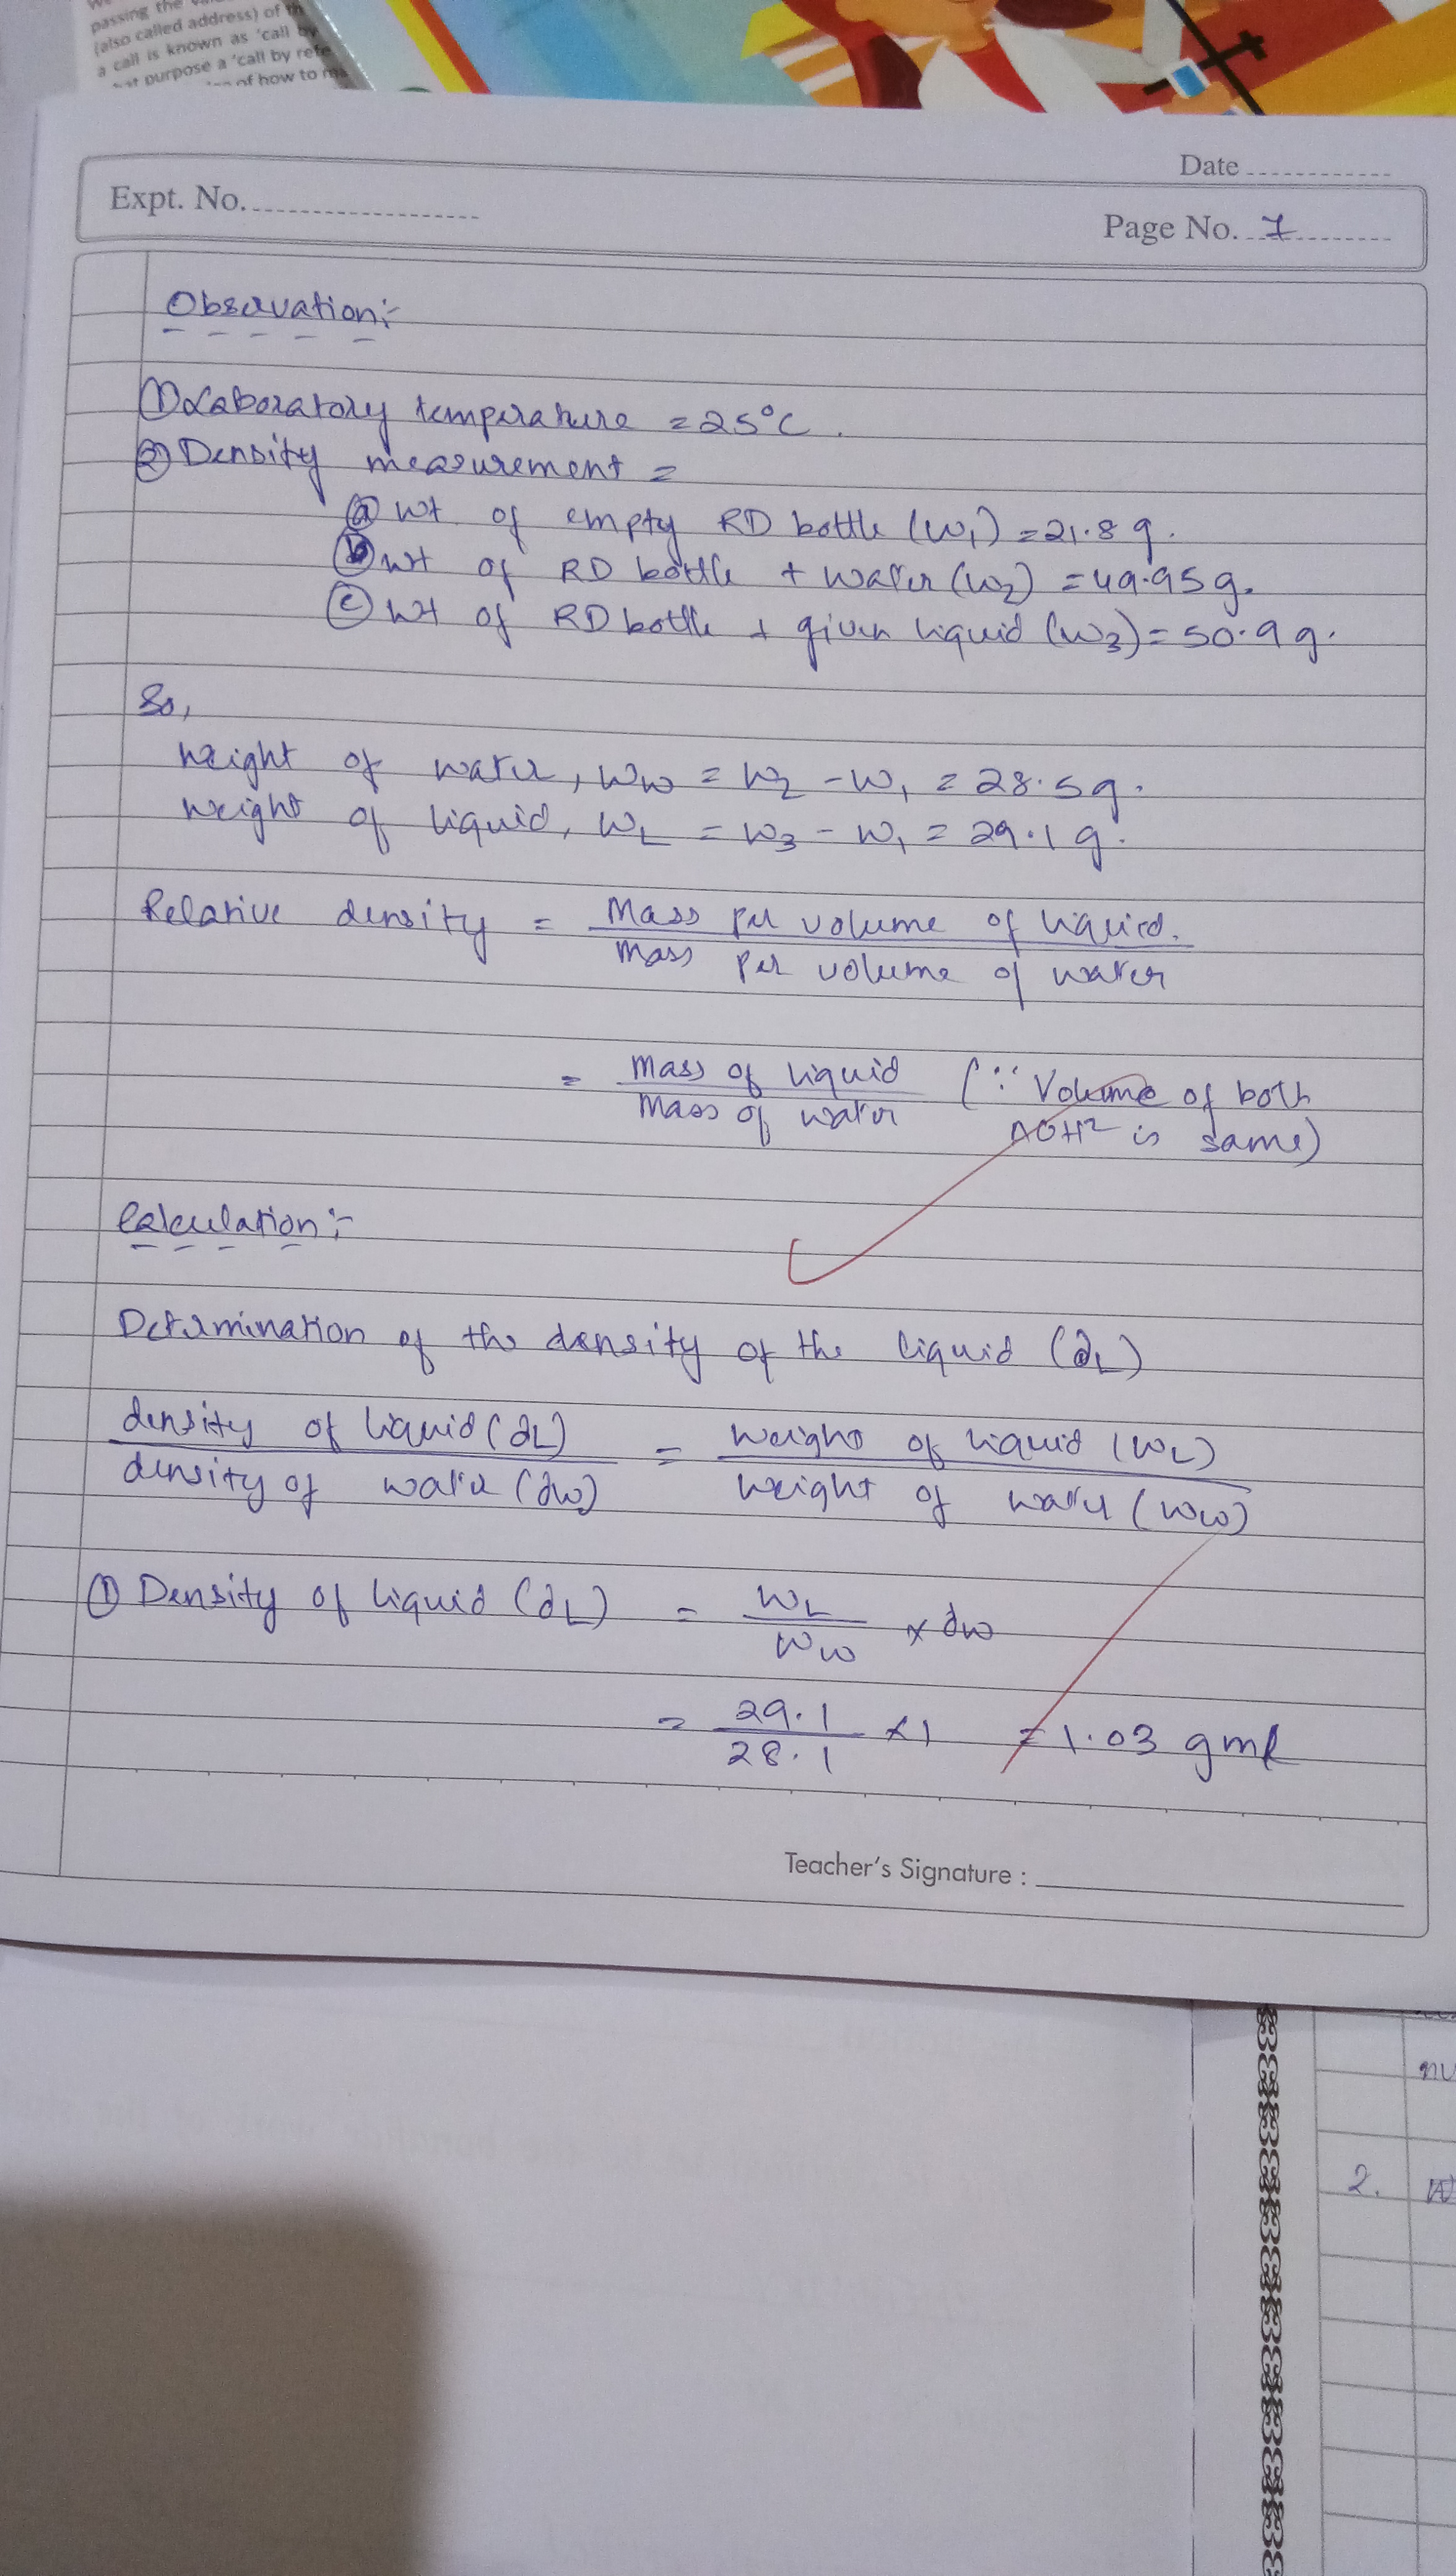 passing the
(also called address) of th
a call is known as 'call by
at purpose a 'call by refe
of how to
Date
Expt. No.
Page No. 7
Observation:-
① Laboratory temperature = 25°C.
② Density measurement =
ⓐ wt. of empty RD bottle (w₁) = 21.8 g.
ⓑ wt of RD bottle + water (w₂) = 49.95 g.
ⓒ wt of RD bottle + given liquid (w₃) = 50.9 g.
So,
weight of water, Ww = W₂ - W₁ = 28.5 g.
weight of liquid, WL = W₃ - W₁ = 29.1 g.
Relative density = Mass per volume of liquid.
Mass per volume of water
= Mass of liquid (∵ Volume of both
Mass of water is same)
Calculation:-
Determination of the density of the liquid (∂L)
density of liquid (∂L) = weight of liquid (WL)
density of water (∂w) weight of water (Ww)
① Density of liquid (∂L) = WL × ∂w
Ww
= 29.1 × 1 = 1.03 gml
28.1
Teacher's Signature :
2.